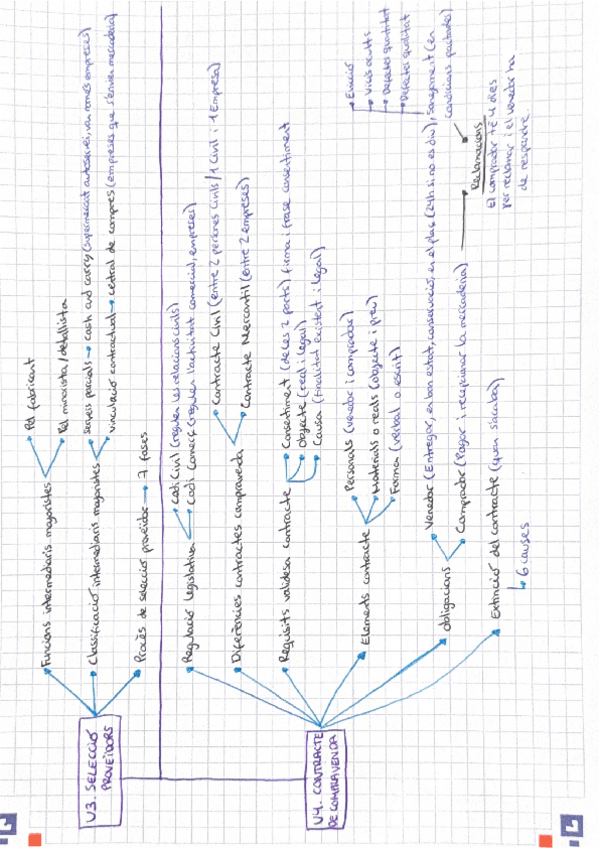 U3. SELECCIÓ
PROVEÏDORS
Funcions intermediaris majoristes
Pel fabricant
Pel minorista/detallista
Classificació intermediaris majoristes
serveis parcials → cash and carry (supermercat autoservei, van només empreses)
vinculació contractual → central de compres (empreses que s'envien mercaderia)
Procés de selecció proveïdor → 7 fases
U4. CONTRACTE
DE COMPRAVENDA
Regulació legislativa
Codi Civil (regulen les relacions civils)
Codi Comerç (regulen l'activitat comercial, empreses)
Diferències contractes compravenda
Contracte Civil (entre 2 persones civils / 1 civil i 1 Empresa)
Contracte Mercantil (entre 2 empreses)
Requisits validesa contracte
Consentiment (de les 2 parts) firma i frase consentiment
Objecte (real i legal)
Causa (finalitat existent i legal)
Elements contracte
Personals (venedor i comprador)
Materials o reals (objecte i preu)
Formen (verbal o escrit)
Obligacions
Venedor (Entregar, en bon estat, conservació, en el plaç (24h si no es diu), sanejament (en
condicions pactades)
Envició
Vicis ocults
Defectes quantitat
Defectes qualitat
Comprador (Pagar i recepcionar la mercaderia)
Reclamacions
El comprador té 4 dies
per reclamar i el venedor ha
de respondre.
Extinció del contracte (quan s'acaba)
↳ 6 causes